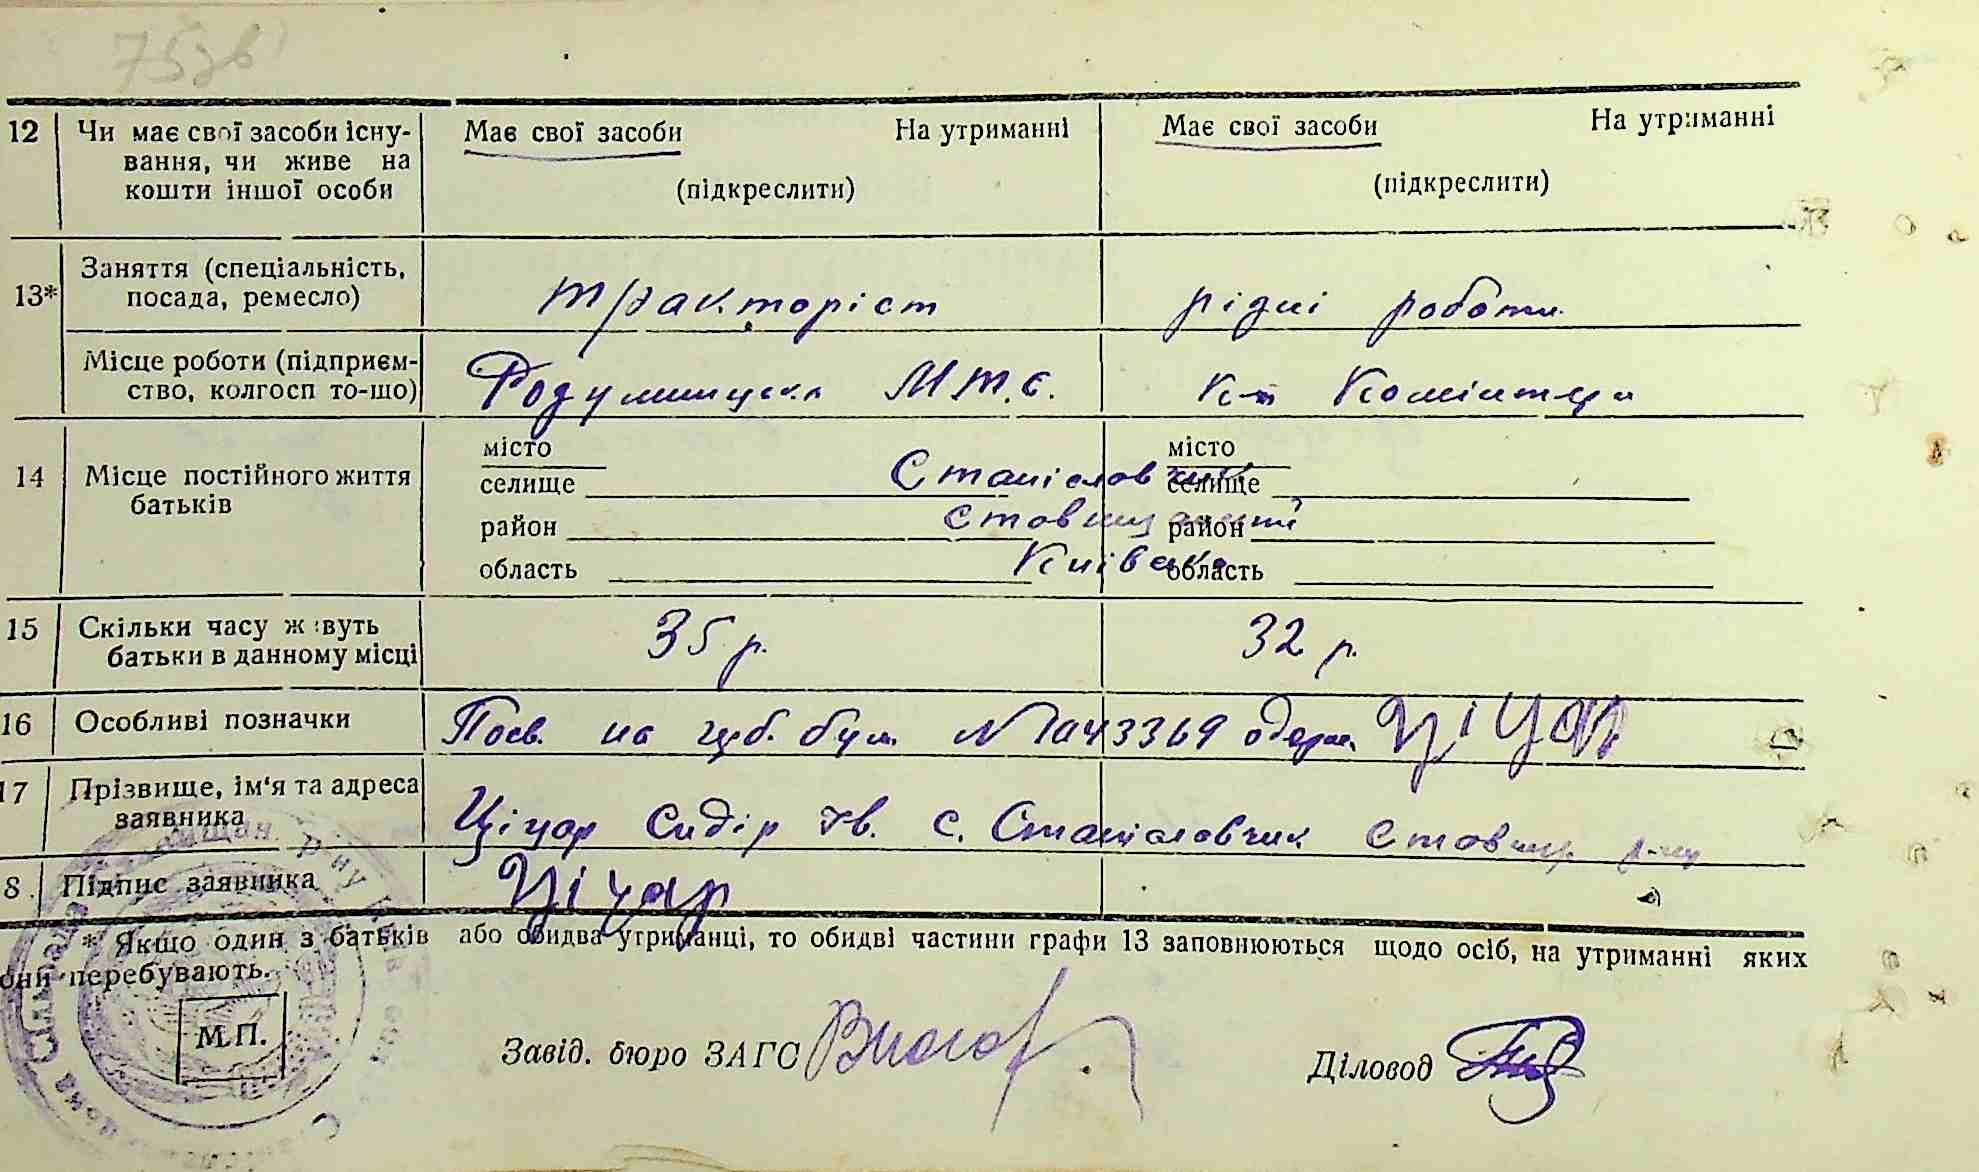 12 Чи має свої засоби існу- Має свої засоби На утриманні Має свої засоби На утриманні
вання, чи живе на
кошти іншої особи (підкреслити) (підкреслити)
13* Заняття (спеціальність, посада, ремесло) тракторіст різні роботи
Місце роботи (підприєм-
ство, колгосп то-що) М.Т.С. К-п Комінтерн
14 Місце постійного життя
батьків
місто місто
селище Станіславчик селище
район район
область Київська область
15 Скільки часу живуть 35 р. 32 р.
батьки в данному місці
16 Особливі позначки Посв. на №1043369 одерж. Ціцар
17 Прізвище, ім'я та адреса
заявника Ціцар Сидір Ів. с. Станіславчик Ставищ. р-ну
8. Підпис заявника Ціцар
* Якшо один з батьків або обидва утриманці, то обидві частини графи 13 заповнюються щодо осіб, на утриманні яких
они перебувають.
М.П.
Завід. бюро ЗАГС Діловод